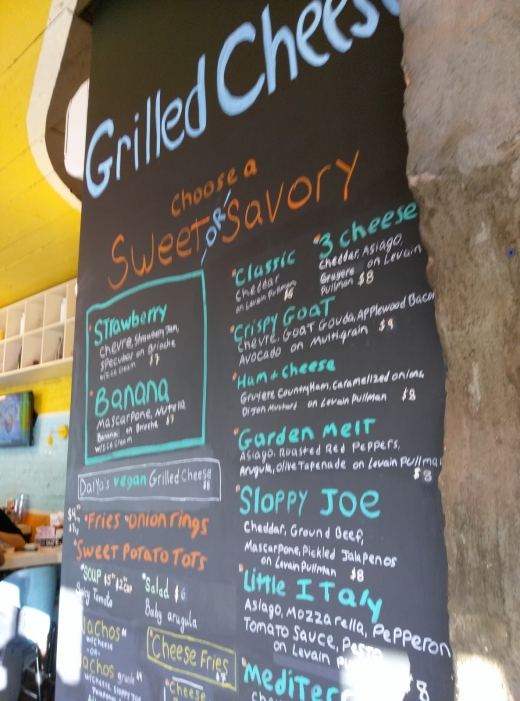 Grilled Cheese
Choose a
Sweet OR Savory
Strawberry
Chevre, Strawberry Jam,
Speculoos on Brioche
w/ice cream $7
Banana
Mascarpone, Nutella
Bananas on Brioche $7
w/ice cream
Daiya's vegan Grilled Cheese
$8
Fries onion rings
Sweet Potato Tots
Soup
Spicy Tomato
Salad $6
Baby arugula
Nachos
-OR-
Cheese Fries
Cheese
Classic
Cheddar
on Levain Pullman
$6
3 cheese
Cheddar, Asiago,
Gruyere on Levain
Pullman $8
Crispy Goat
Chevre, Goat Gouda, Applewood Bacon
Avocado on Multigrain $9
Ham & cheese
Gruyere Country Ham, Caramelized onions,
Dijon Mustard on Levain Pullman $8
Garden Melt
Asiago, Roasted Red Peppers,
Arugula, Olive Tapenade on Levain Pullman
$8
Sloppy Joe
Cheddar, Ground Beef,
Mascarpone, Pickled Jalapenos
on Levain Pullman $8
Little Italy
Asiago, Mozzarella, Pepperoni
Tomato Sauce,
on Levain
$8